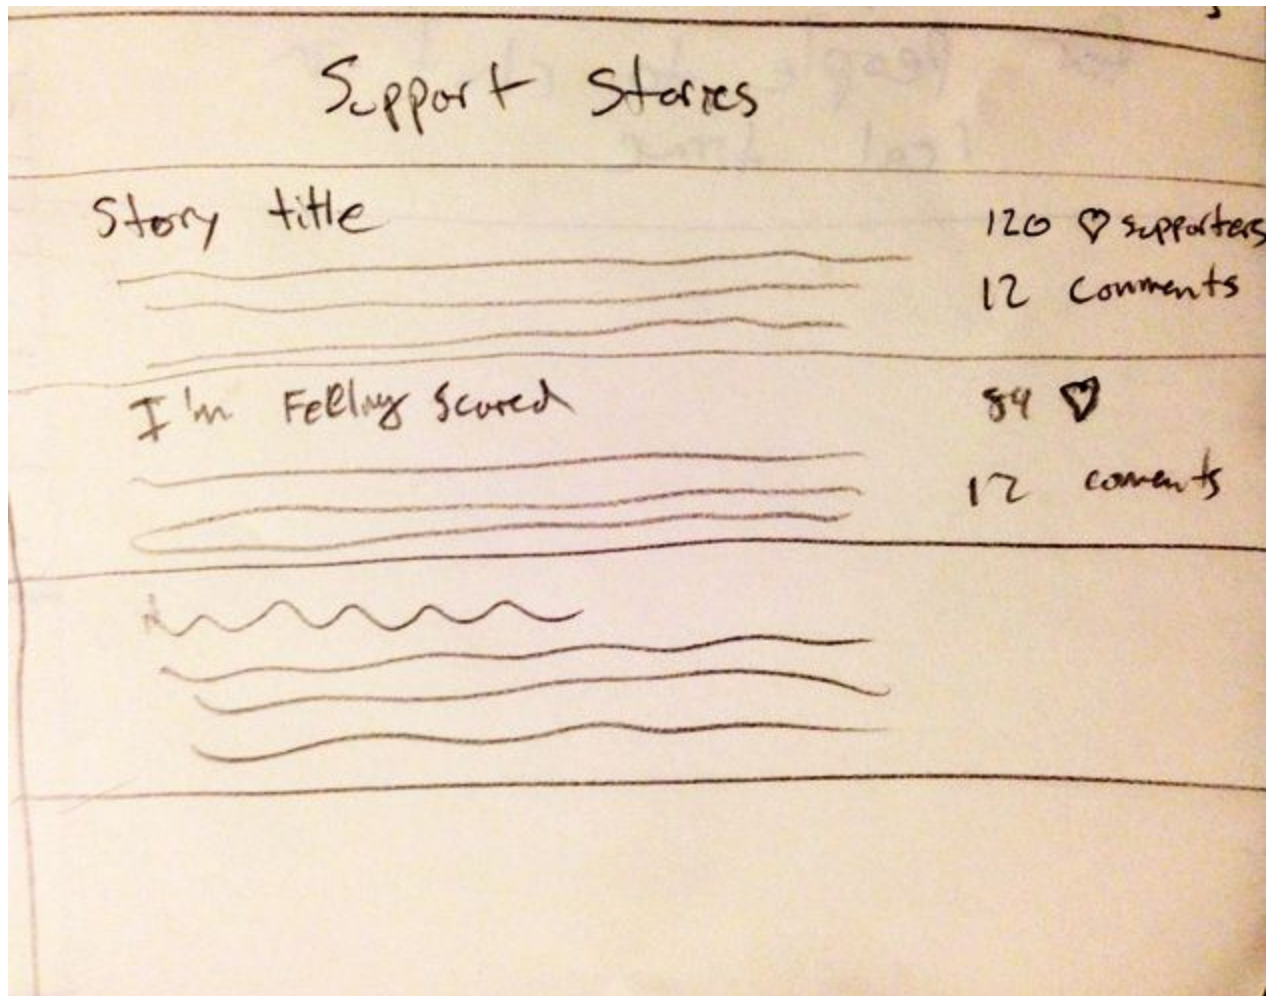 Support Stories
Story title
120 ♡ supporters
12 Comments
I'm Feeling Scared
84 ♡
12 comments